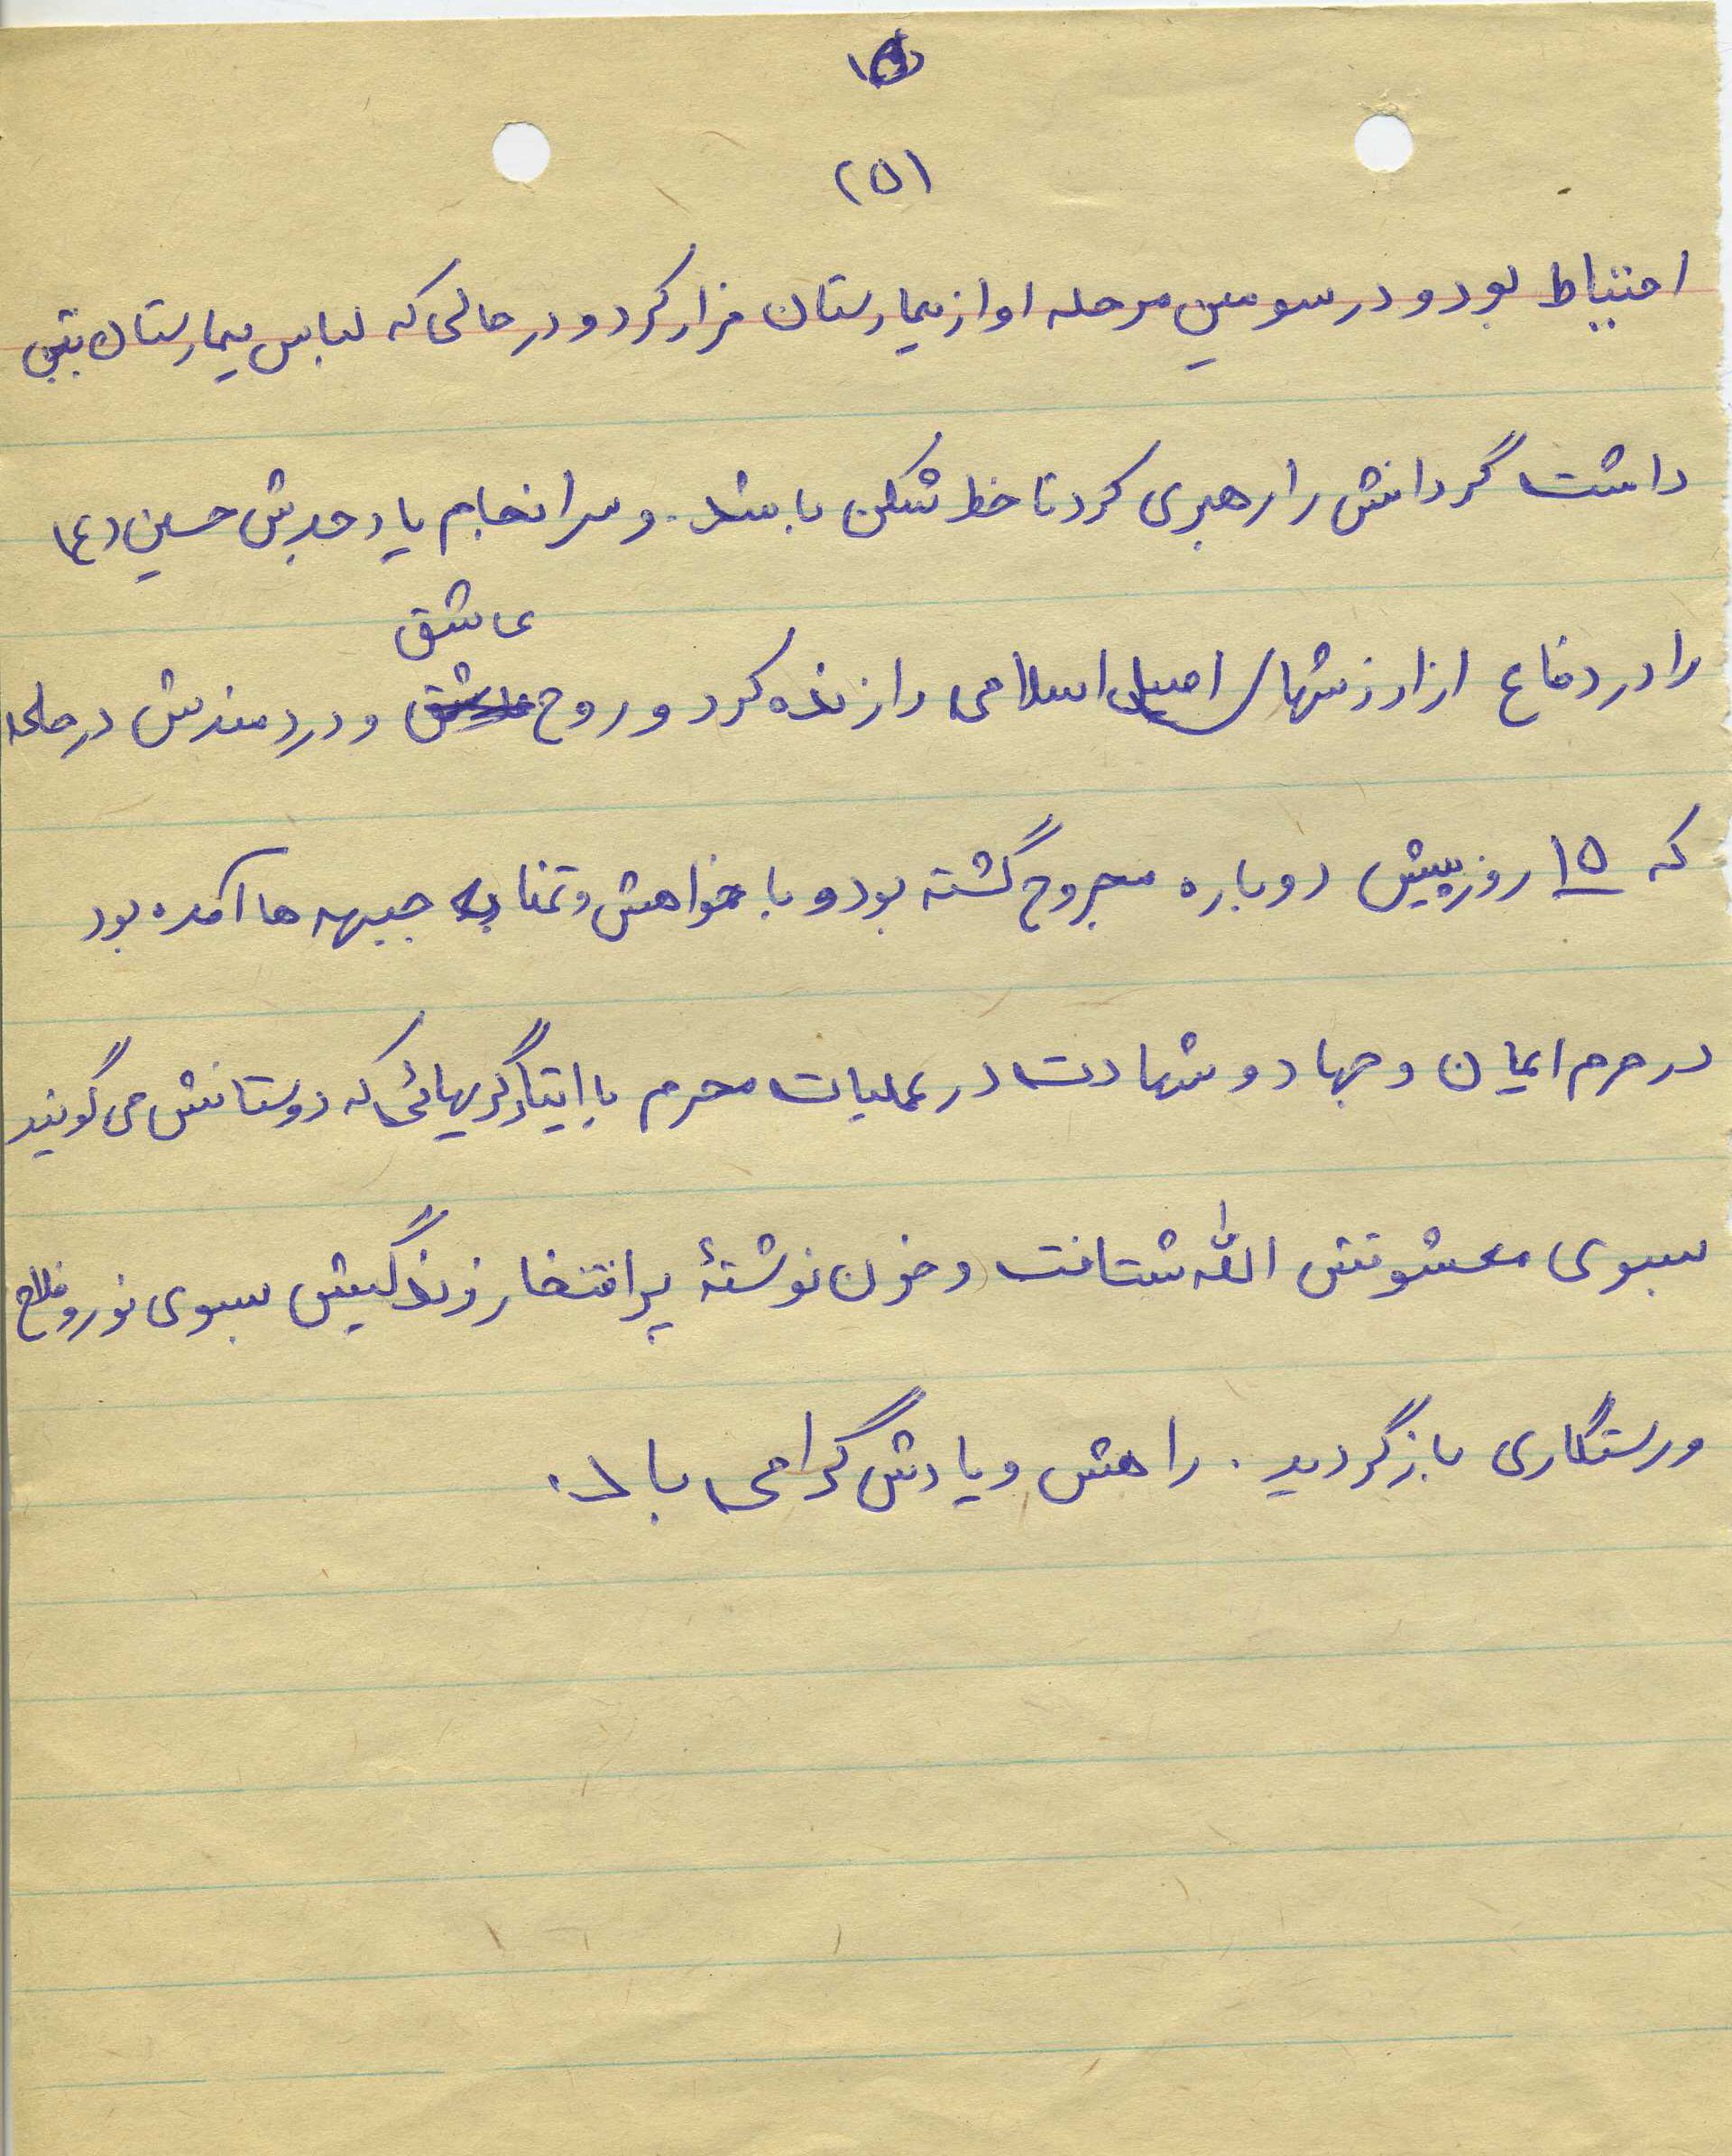 (۵)
احتیاط بود و در سومین مرحله او از بیمارستان فرار کرد و در حالی که لباس بیمارستان بتن
داشت گردانش را رهبری کرد تا خط شکن باشد. و سرانجام یاد جدش حسین (ع)
عاشق
را در دفاع از ارزشهای اصیل اسلامی را زنده کرد و روح و دردمندش در حالیکه
که ۱۵ روز پیش دوباره مجروح گشته بود و با خواهش و تمنا به جبهه ها آمده بود
در حرم ایمان و جهاد و شهادت در عملیات محرم با ایثارگریهائی که دوستانش می گویند
بسوی معشوقش الله شتافت و خون نوشتهٔ پر افتخار زندگیش بسوی نور و فلاح
و رستگاری بازگردید. راهش و یادش گرامی باد.